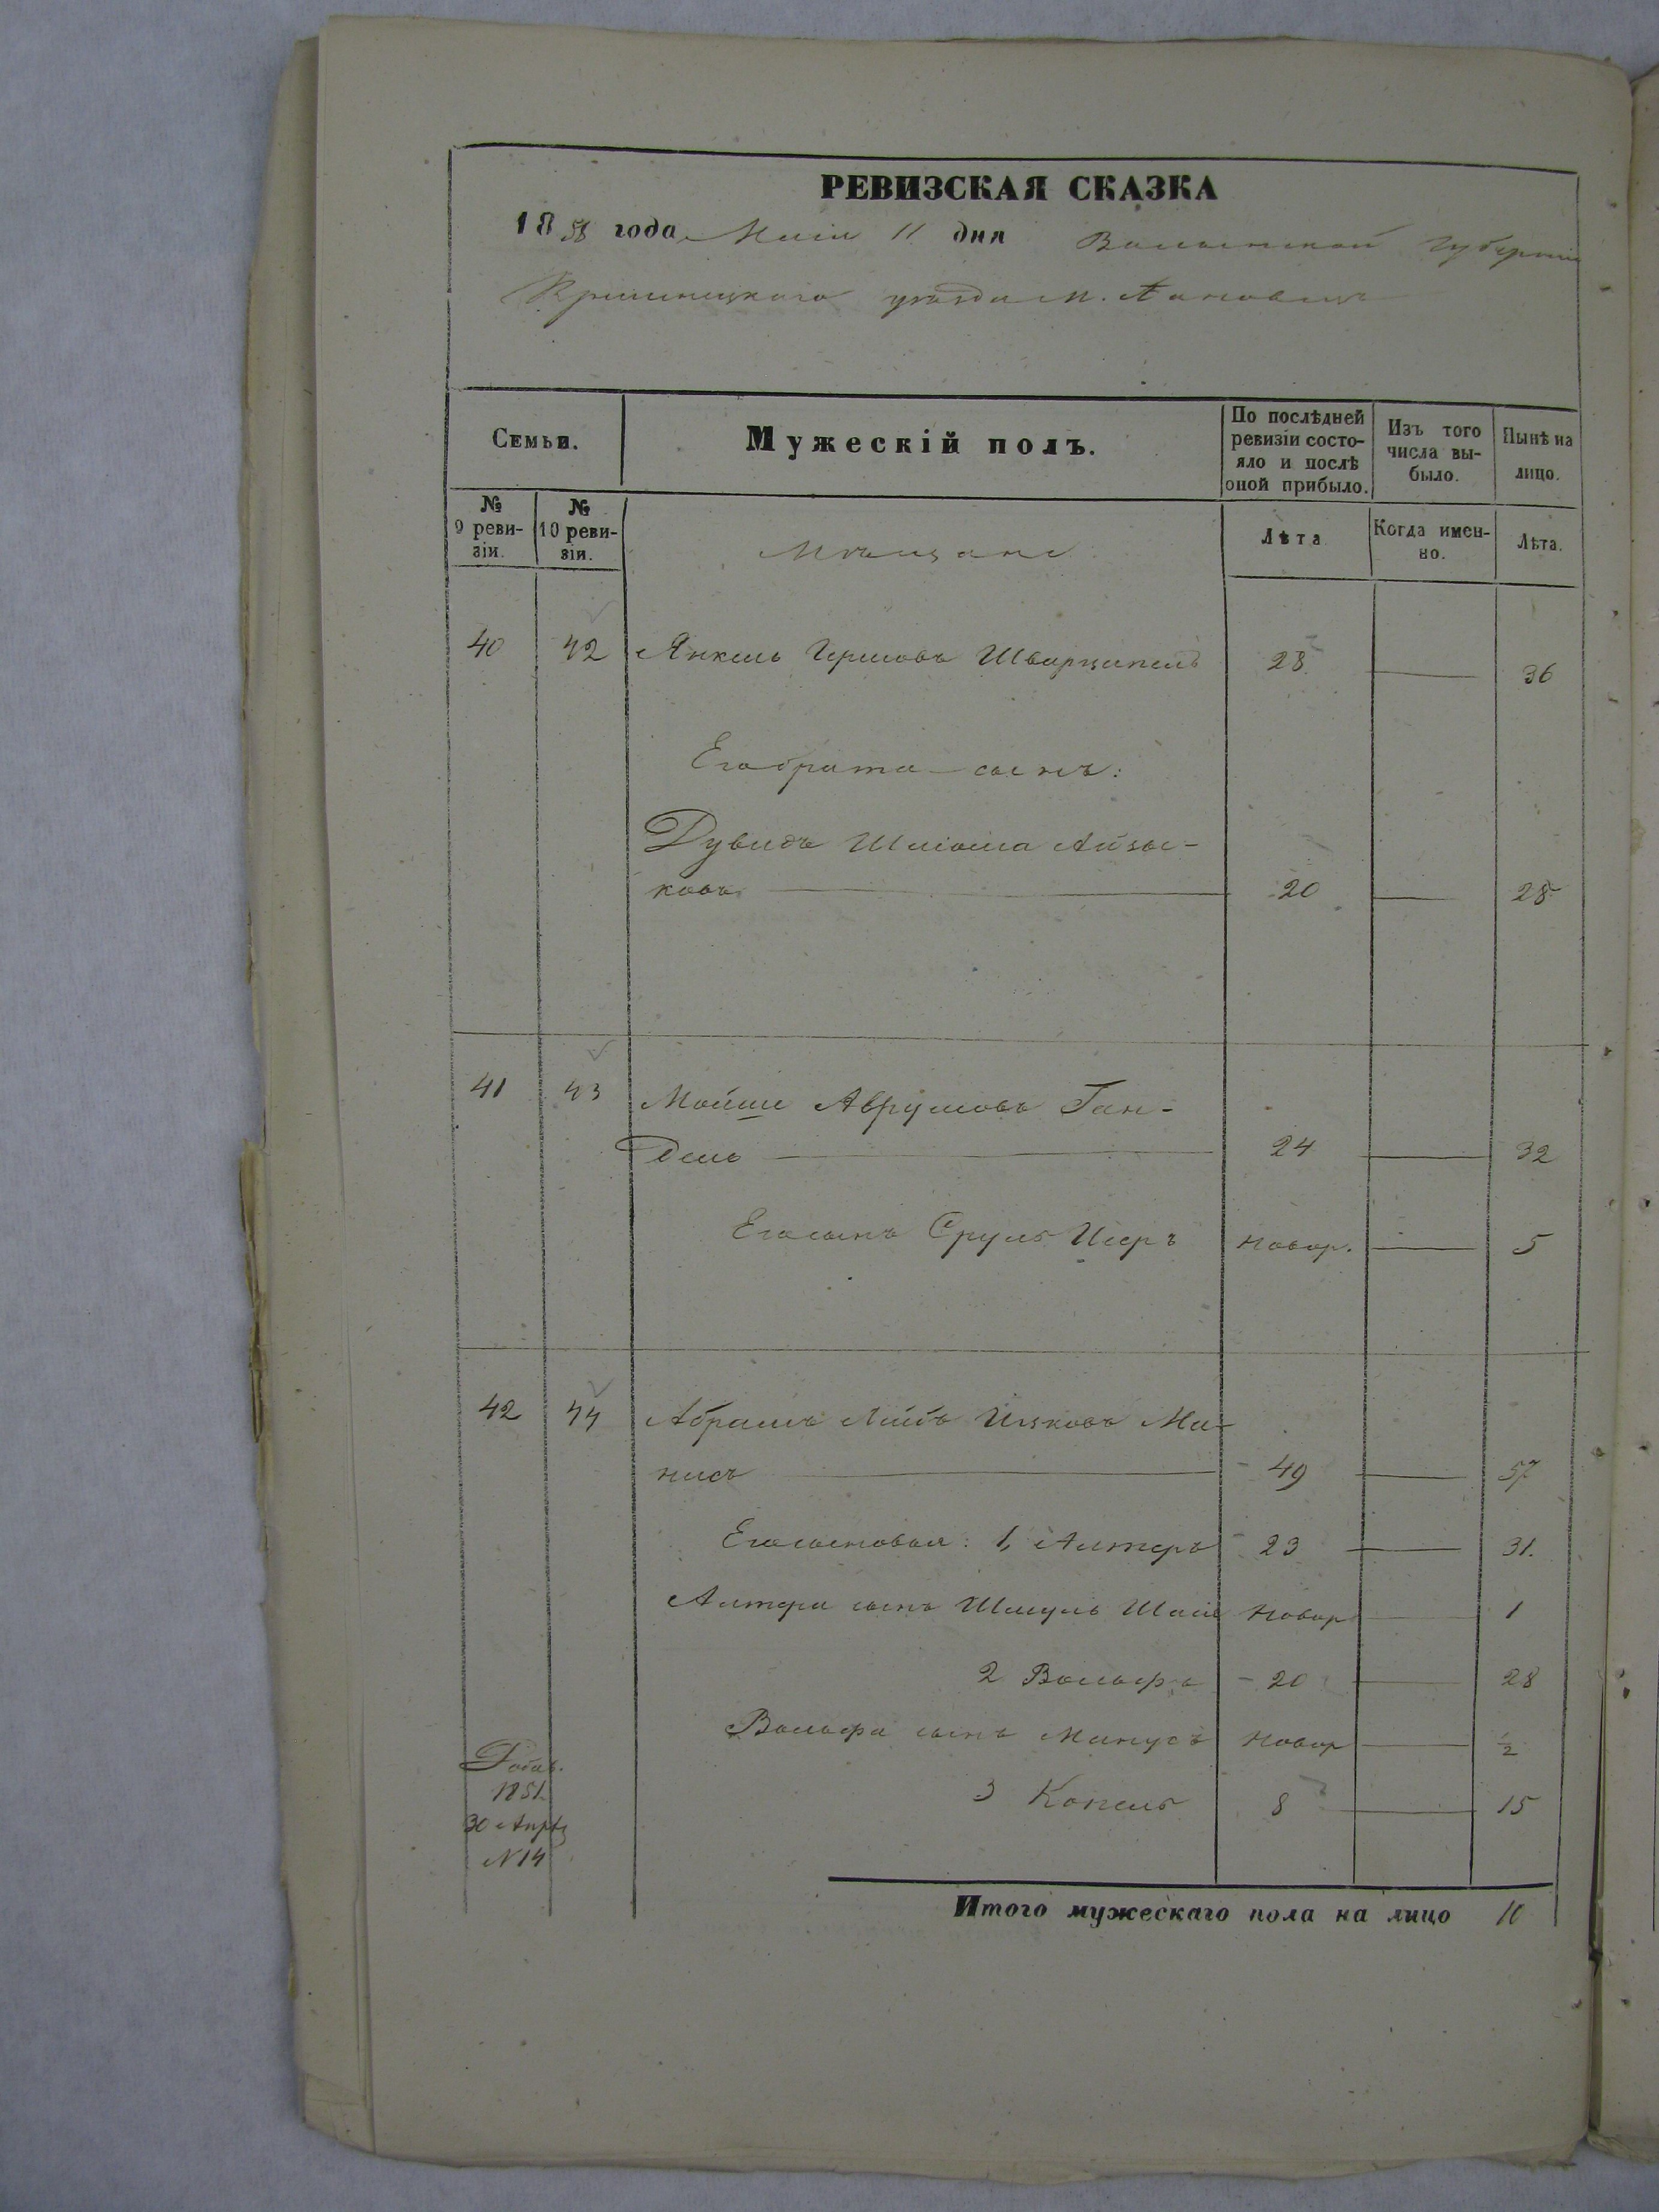 РЕВИЗСКАЯ СКАЗКА
1858 года Маія 11 дня Волынской губерніи
Кременецкаго уѣзда м. Лановецъ
Семьи.
Мужескій полъ.
По послѣдней ревизіи состояло и послѣ оной прибыло.
Изъ того числа выбыло.
Нынѣ на лицо.
№ 9 ревизіи.
№ 10 ревизіи.
Мѣщане
Лѣта
Когда именно.
Лѣта.
40 42 Янкель Гершовъ Шварцапель 28 36
Его брата сынъ:
Дувидъ Шліома Айзы-
ковъ 20 28
41 43 Мойше Аврумовъ Ган-
дель 24 32
Его сынъ Сруль Исеръ новор. 5
42 44 Абрамъ Лейбъ Ицковъ Ма-
нисъ 49 57
Его сыновья: 1, Алтеръ 23 31.
Алтера сынъ Шмуль новор 1
2 Вольфъ 20 28
Вольфа сынъ Манусъ новор ½
3 Копель 8 15
Добав.
1851
30 Апрѣ
N 14
Итого мужескаго пола на лицо 10